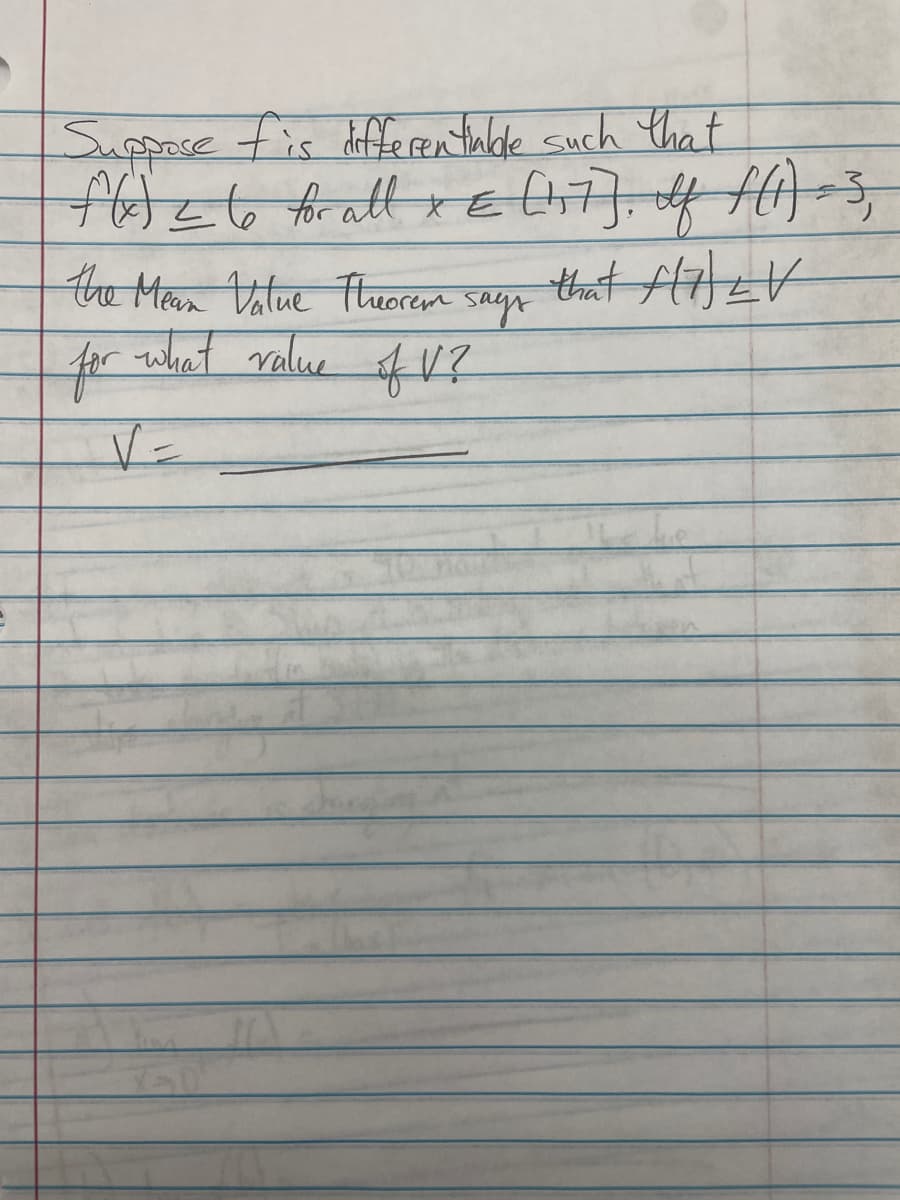 Suppose f is differentiable such that
f'(x) ≤ 6 for all x ∈ [1,7]. If f(1) = 3,
the Mean Value Theorem says that f(7) ≤ V
for what value of V?
V = ________